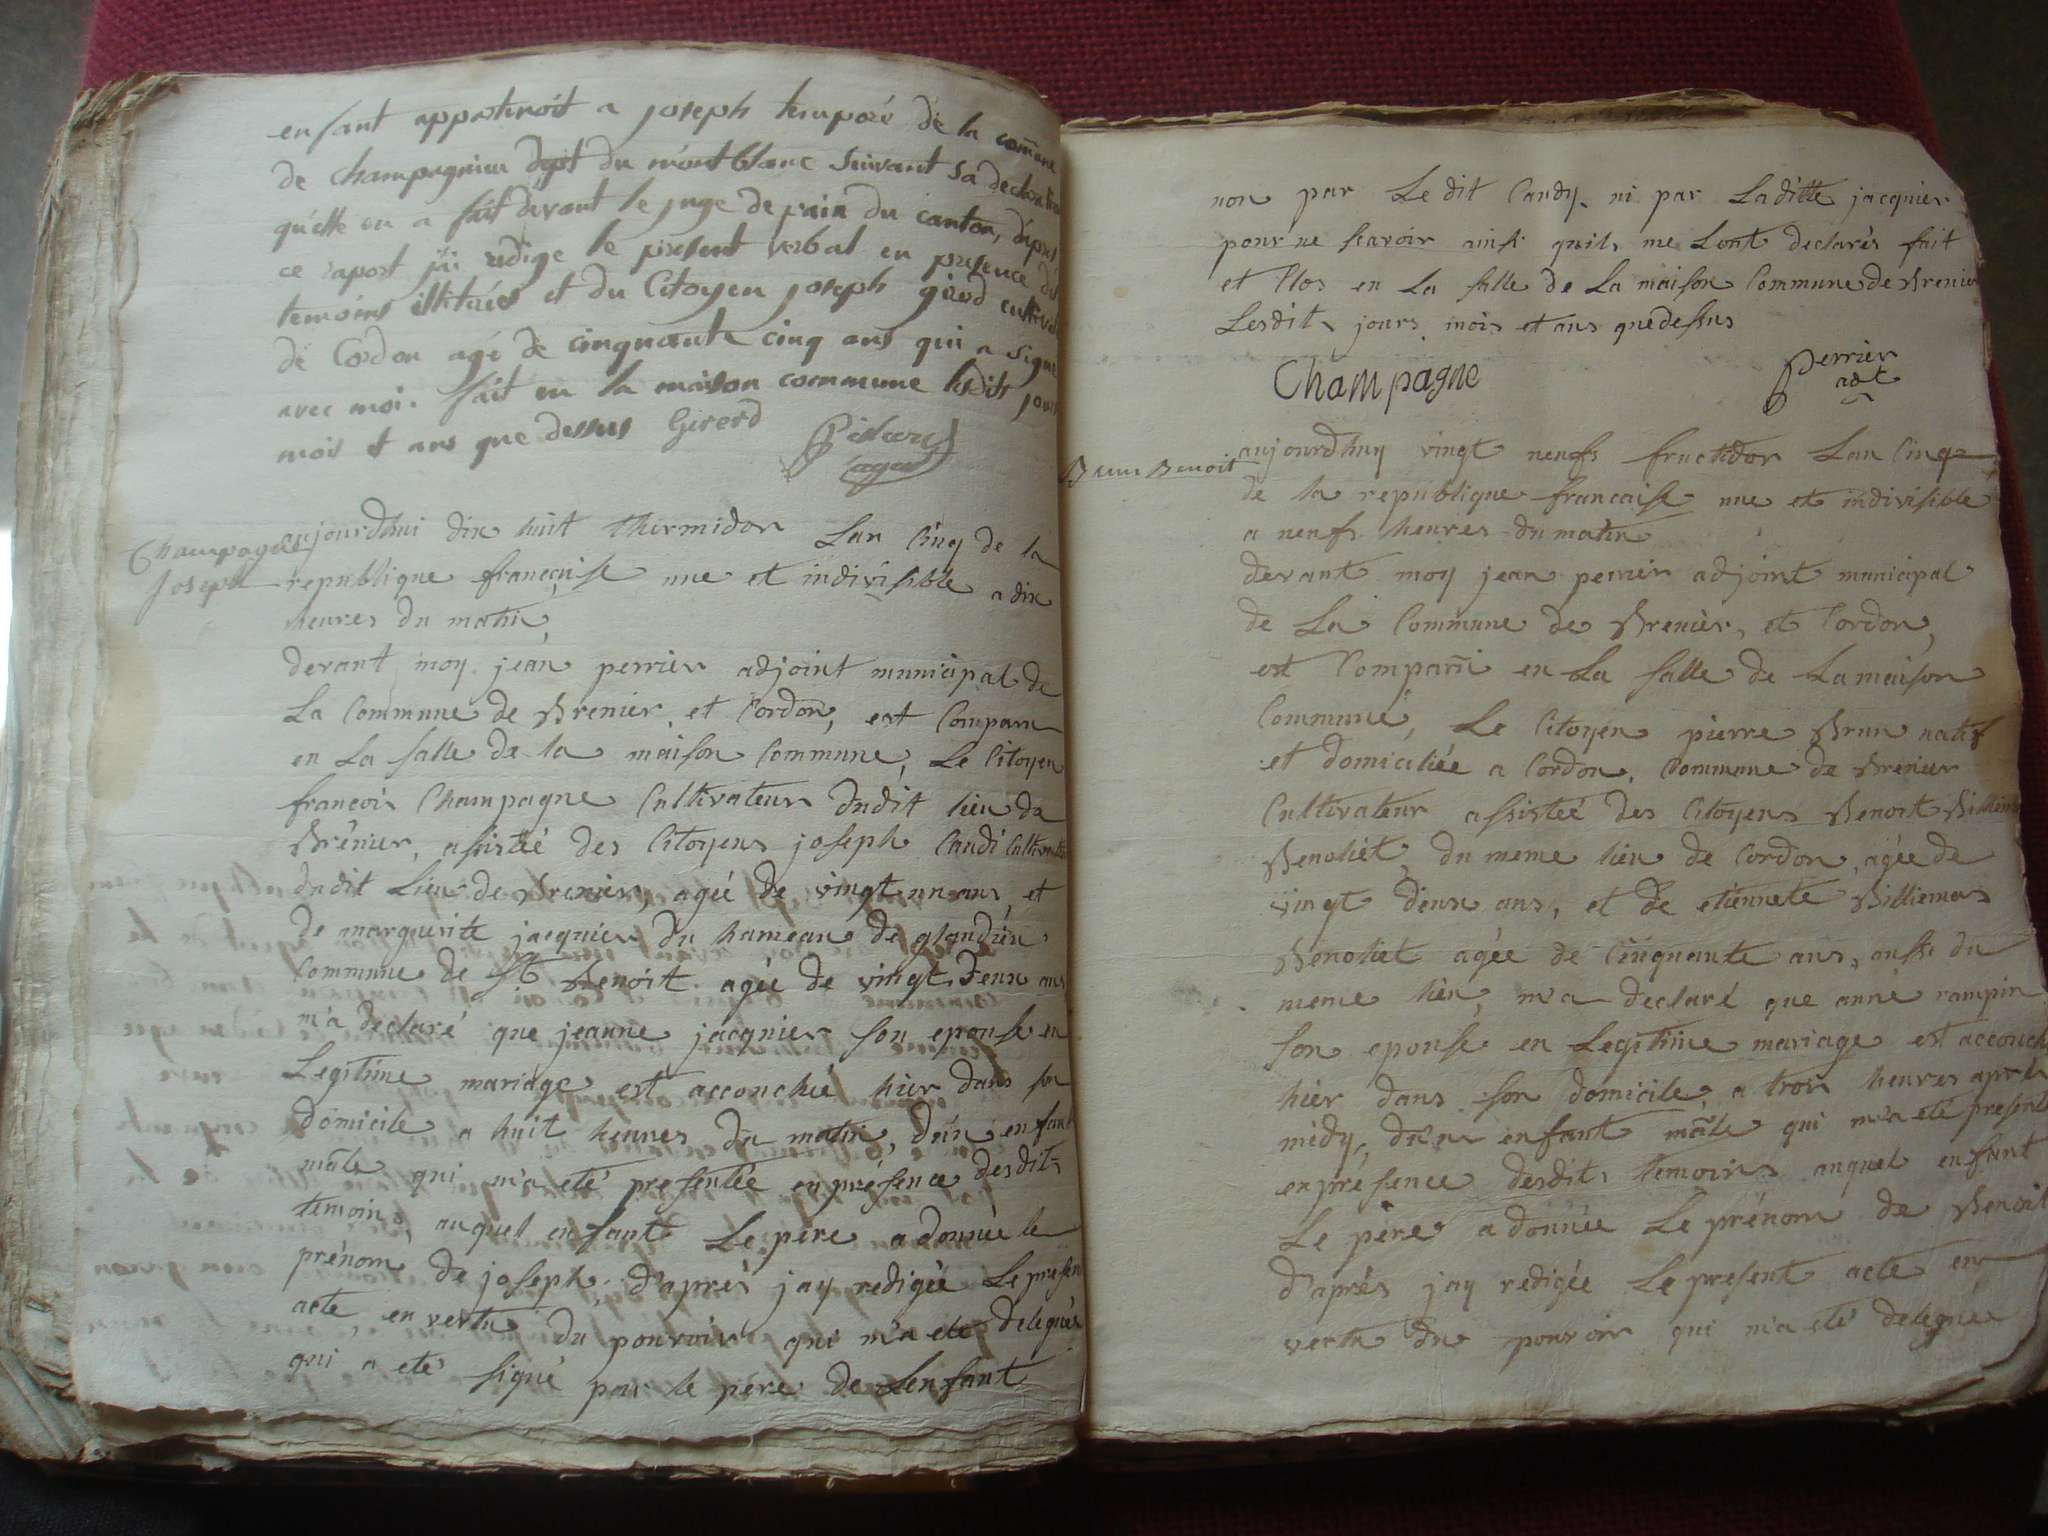 enfant appartenoit a joseph temporé de la comune
de Champagnieu dept du mont blanc suivant sa declaration
qu'elle en a fait devant le juge de paix du canton, d'apres
ce raport j'ai redige le present verbal en presence des
temoins illitérés et du Citoyen joseph girerd cultivat
de Cordon agé de cinquante cinq ans qui a signé
avec moi. fait en la maison commune lesdits jours
mois et ans que dessus Girerd
agent
Champagne
Joseph
aujourdhui dix huit thermidor Lan Cinq de la
republique francaise une et indivisible a dix
heures du matin
devant moy jean perrier adjoint municipal de
La Commune de Brenier, et Cordon, est Comparu
en La salle de la maison Commune, Le Citoyen
francois Champagne Cultivateur dudit lieu de
Brénier, assistée des Citoyens joseph Candi Cultivateur
dudit Lieu de Brenier, agée de vingt un ans, et
de marguerite jacquier du hameau de glandieu
Commune de St Benoit agée de vingt Deux ans
m'a declaré que jeanne jacquier son epouse en
Legitime mariage est accouchée hier dans son
domicile a huit heures du matin, d'un enfant
mâle qui m'a eté presentée en présence desdits
temoins, auquel enfant Le père a donnée le
prénom de joseph, d'aprés jay redigée Le present
acte, en vertu du pouvoir qui m'a eté delegués
qui a eté signé par le pére de Lenfant
non par Le dit Candy, ni par Laditte jacquier
pour ne scavoir ainsi quils me Lont declarés fait
et Clos en La salle de La maison Commune de Brenier
Lesdits jours mois et ans que dessus
Champagne Perrier
adt
Brun Benoit
aujourdhuy vingt neufs fructidor Lan Cinq
de la republique francaise une et indivisible
a neufs heures du matin
devant moy jean perrier adjoint municipal
de La Commune de Brenier, et Cordon,
est Comparu en La salle de La maison
Commune, Le Citoyen pierre Brun natif
et domiciliée a Cordon, Commune de Brenier
Cultivateur assistée des Citoyens Benoit Billiemas
Benoliet, du meme lieu de Cordon, agée de
vingt deux ans, et de etiennete Billiemas
Benoliet agée de Cinquante ans, aussi du
meme lieu, m'a declaré que anne rampin
son epouse en Legitime mariage est accouchée
hier dans son domicile, a trois heures aprés
midy, d'un enfant mâle qui m'a eté presenté
en présence desdits temoins auquel enfant
Le père a donnée Le prénom de Benoit
d'aprés jay redigée Le present acte en
vertu du pouvoir qui m'a eté delegués